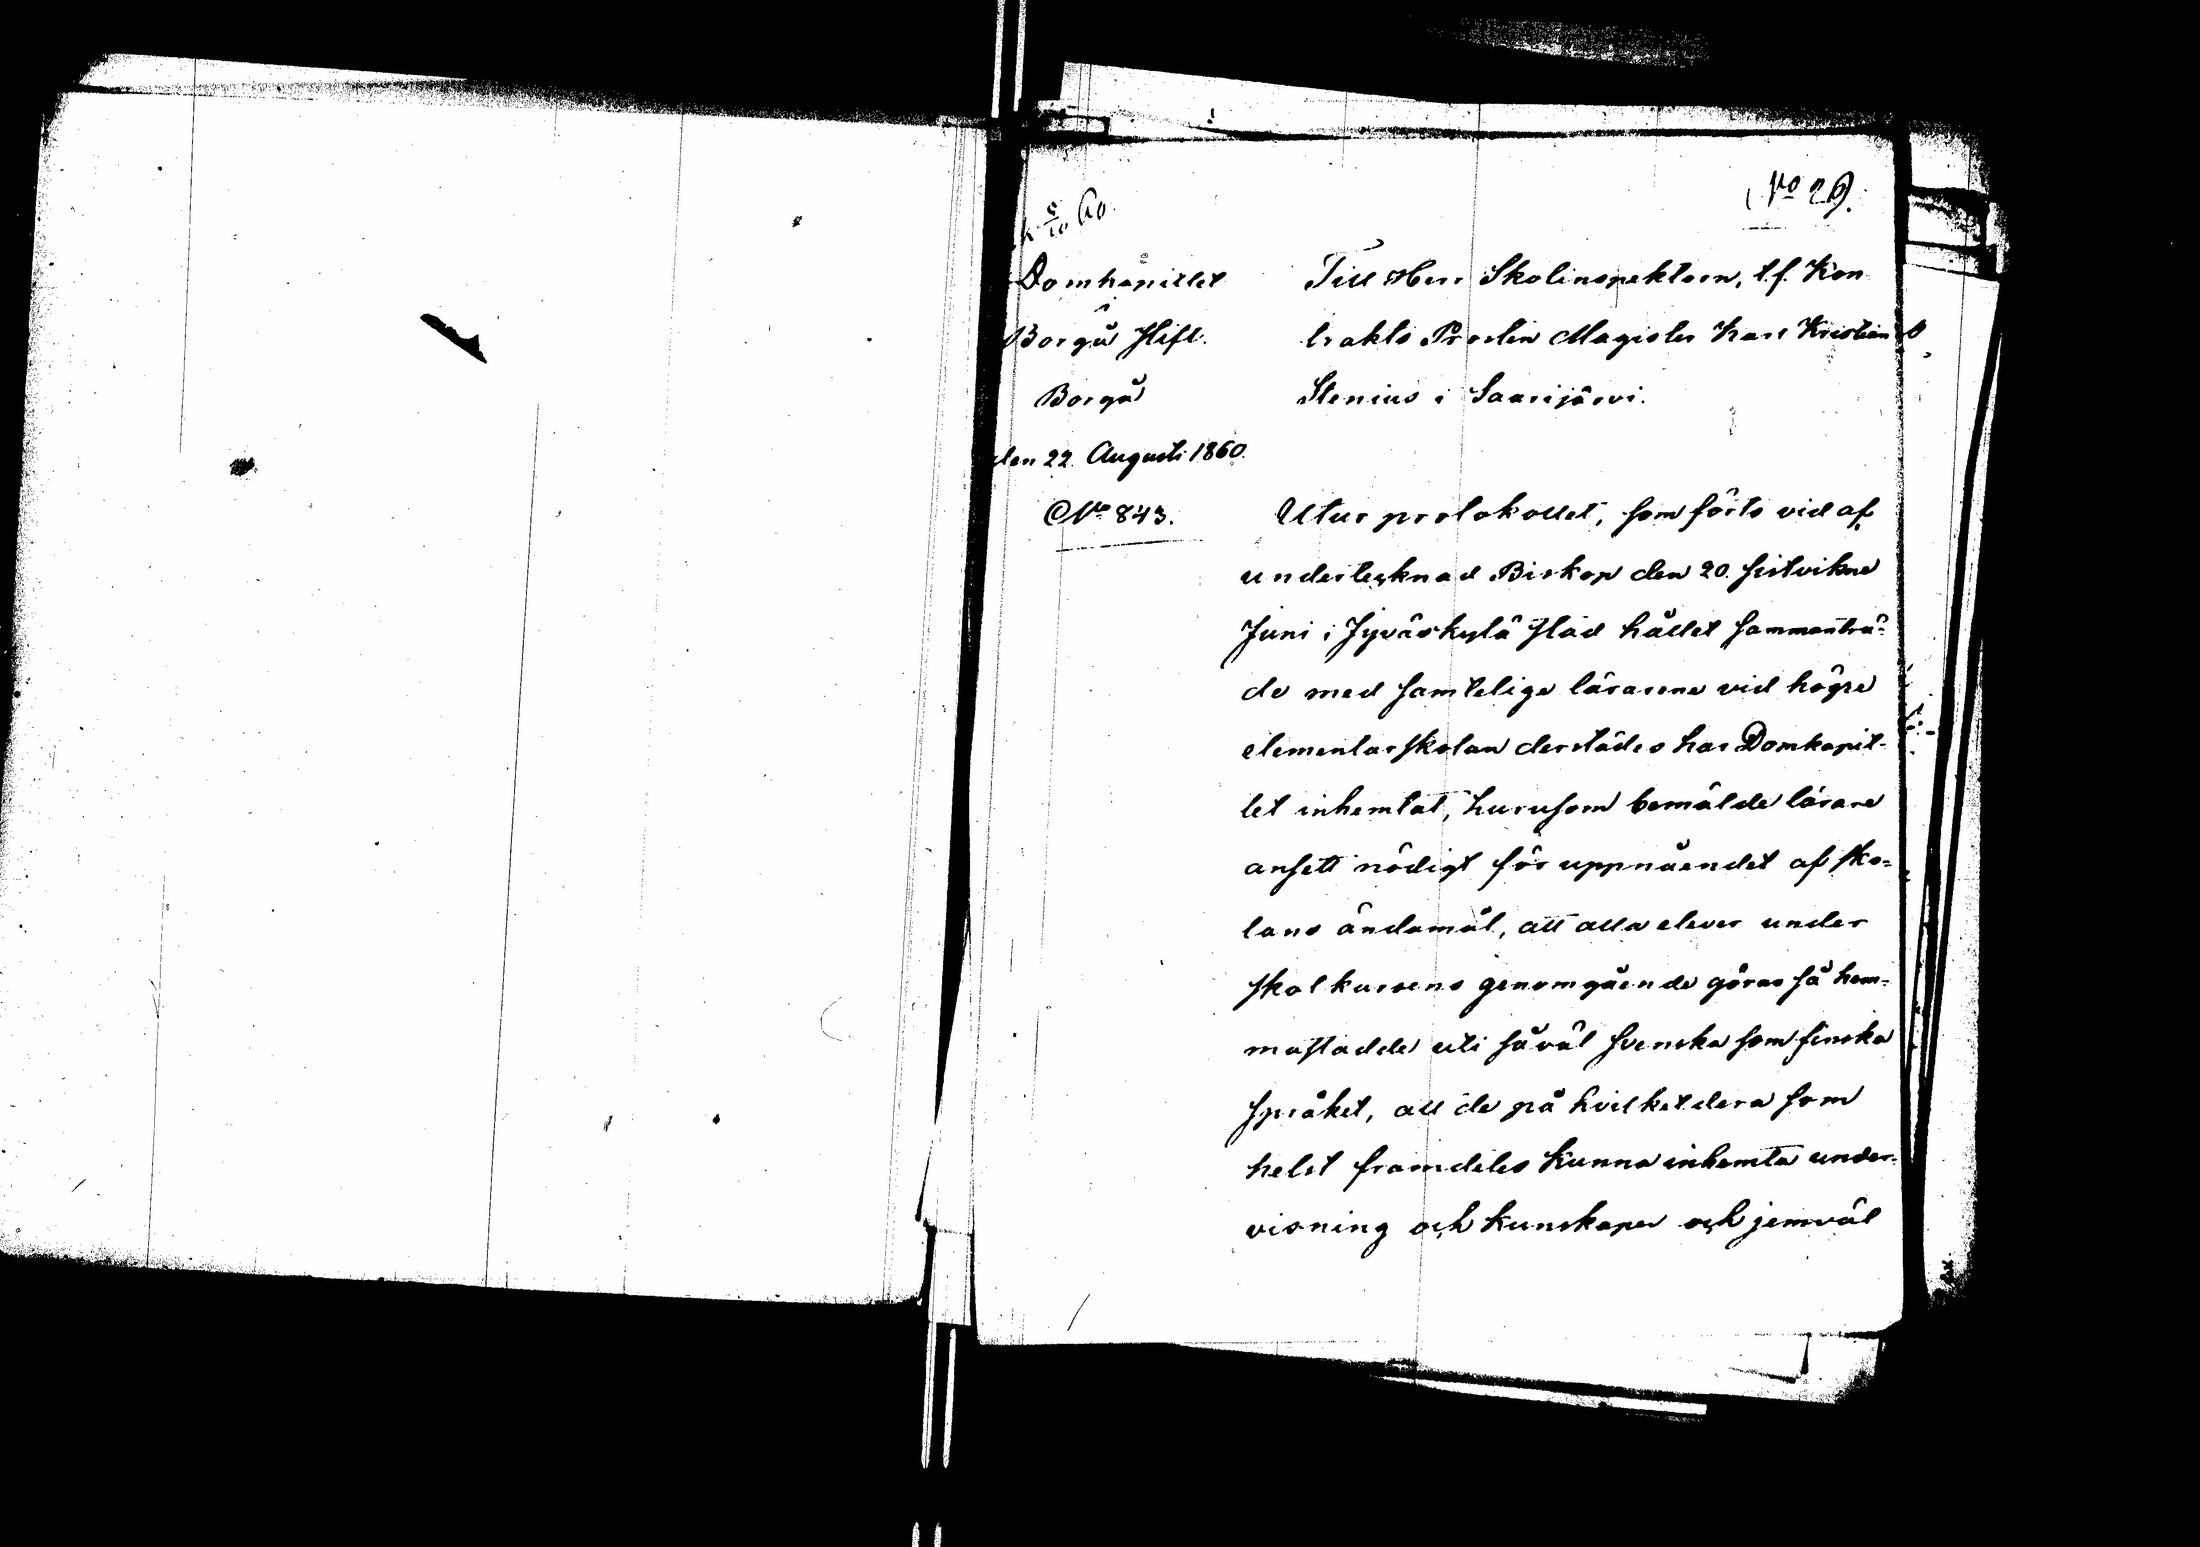 No 29.
5/10 60.
Domkapitlet
i
Borgå Stift.
Borgå
den 22 Augusti 1860.
No 843.
Till Herr Skolinspektorn, t.f. Kon
trakts Prosten Magister Karl Kristian
Stenius i Saarijärvi.
Utur protokollet, som förts vid af
undertecknad Biskop den 20 sistvikne
Juni i Jyväskylä stad hållet sammanträ-
de med samtelige lärarene vid högre
elementarskolan derstädes har Domkapit-
let inhemtat, hurusom bemälde lärare
ansett nödigt för uppnåendet af sko-
lans ändamål, att alla elever under
skolkursens genomgående göras så hem-
mastadde uti såväl svenska som finska
språket, att de på hvilketdera som
helst framdeles kunna inhemta under-
visning och kunskaper och jemväl